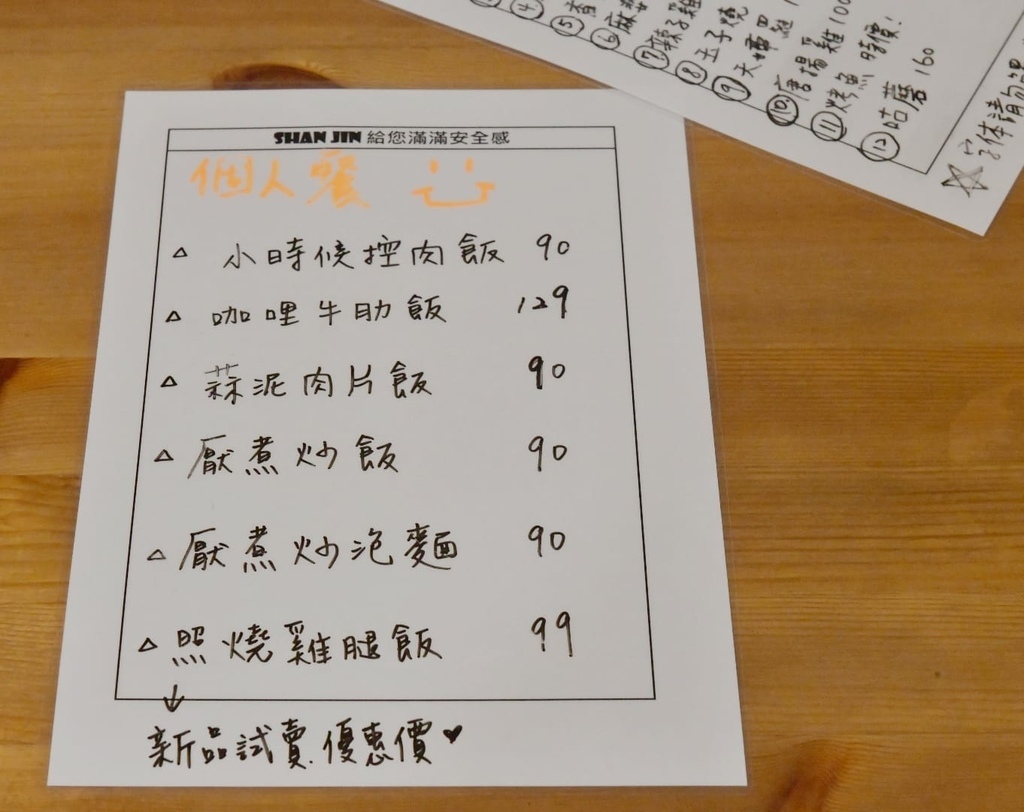 SHAN JIN 給您滿滿安全感
個人餐
△ 小時候控肉飯 90
△ 咖哩牛肋飯 129
△ 蒜泥肉片飯 90
△ 厭煮炒飯 90
△ 厭煮炒泡麵 90
△ 照燒雞腿飯 99
↓
新品試賣.優惠價♥
④
⑤
⑥麻
⑦辣子雞
⑧五子燒
⑨天婦羅
⑩唐揚雞100
⑪烤魚 時價!
⑫咕蘑 160
☆字体請勿